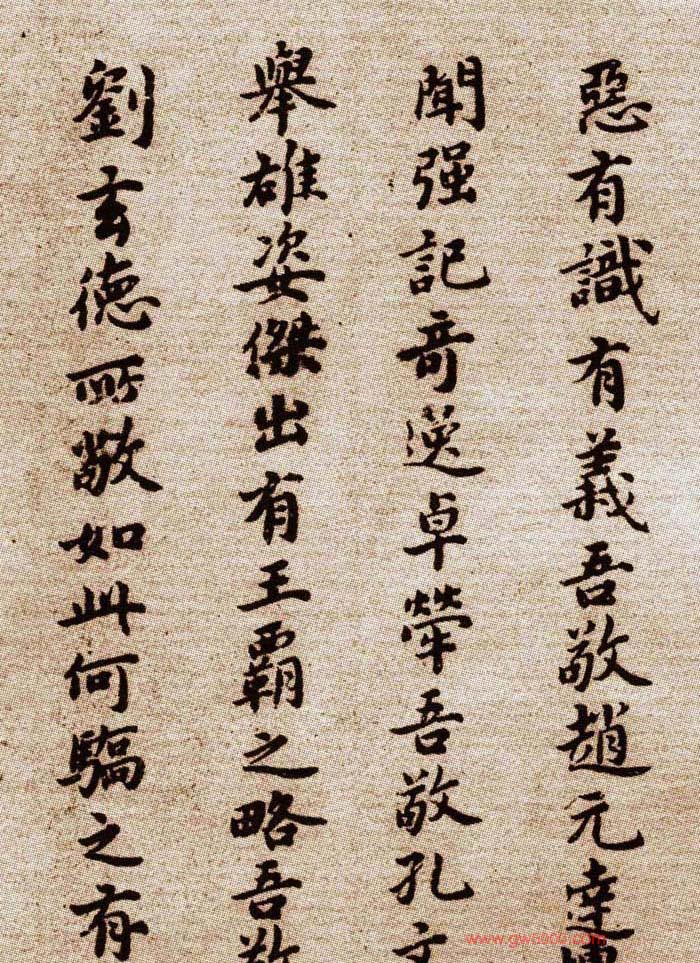 惡有識有義吾敬趙元達
聞强記奇逸卓犖吾敬孔文
舉雄姿傑出有王霸之略吾敬
劉玄德所敬如此何驕之有